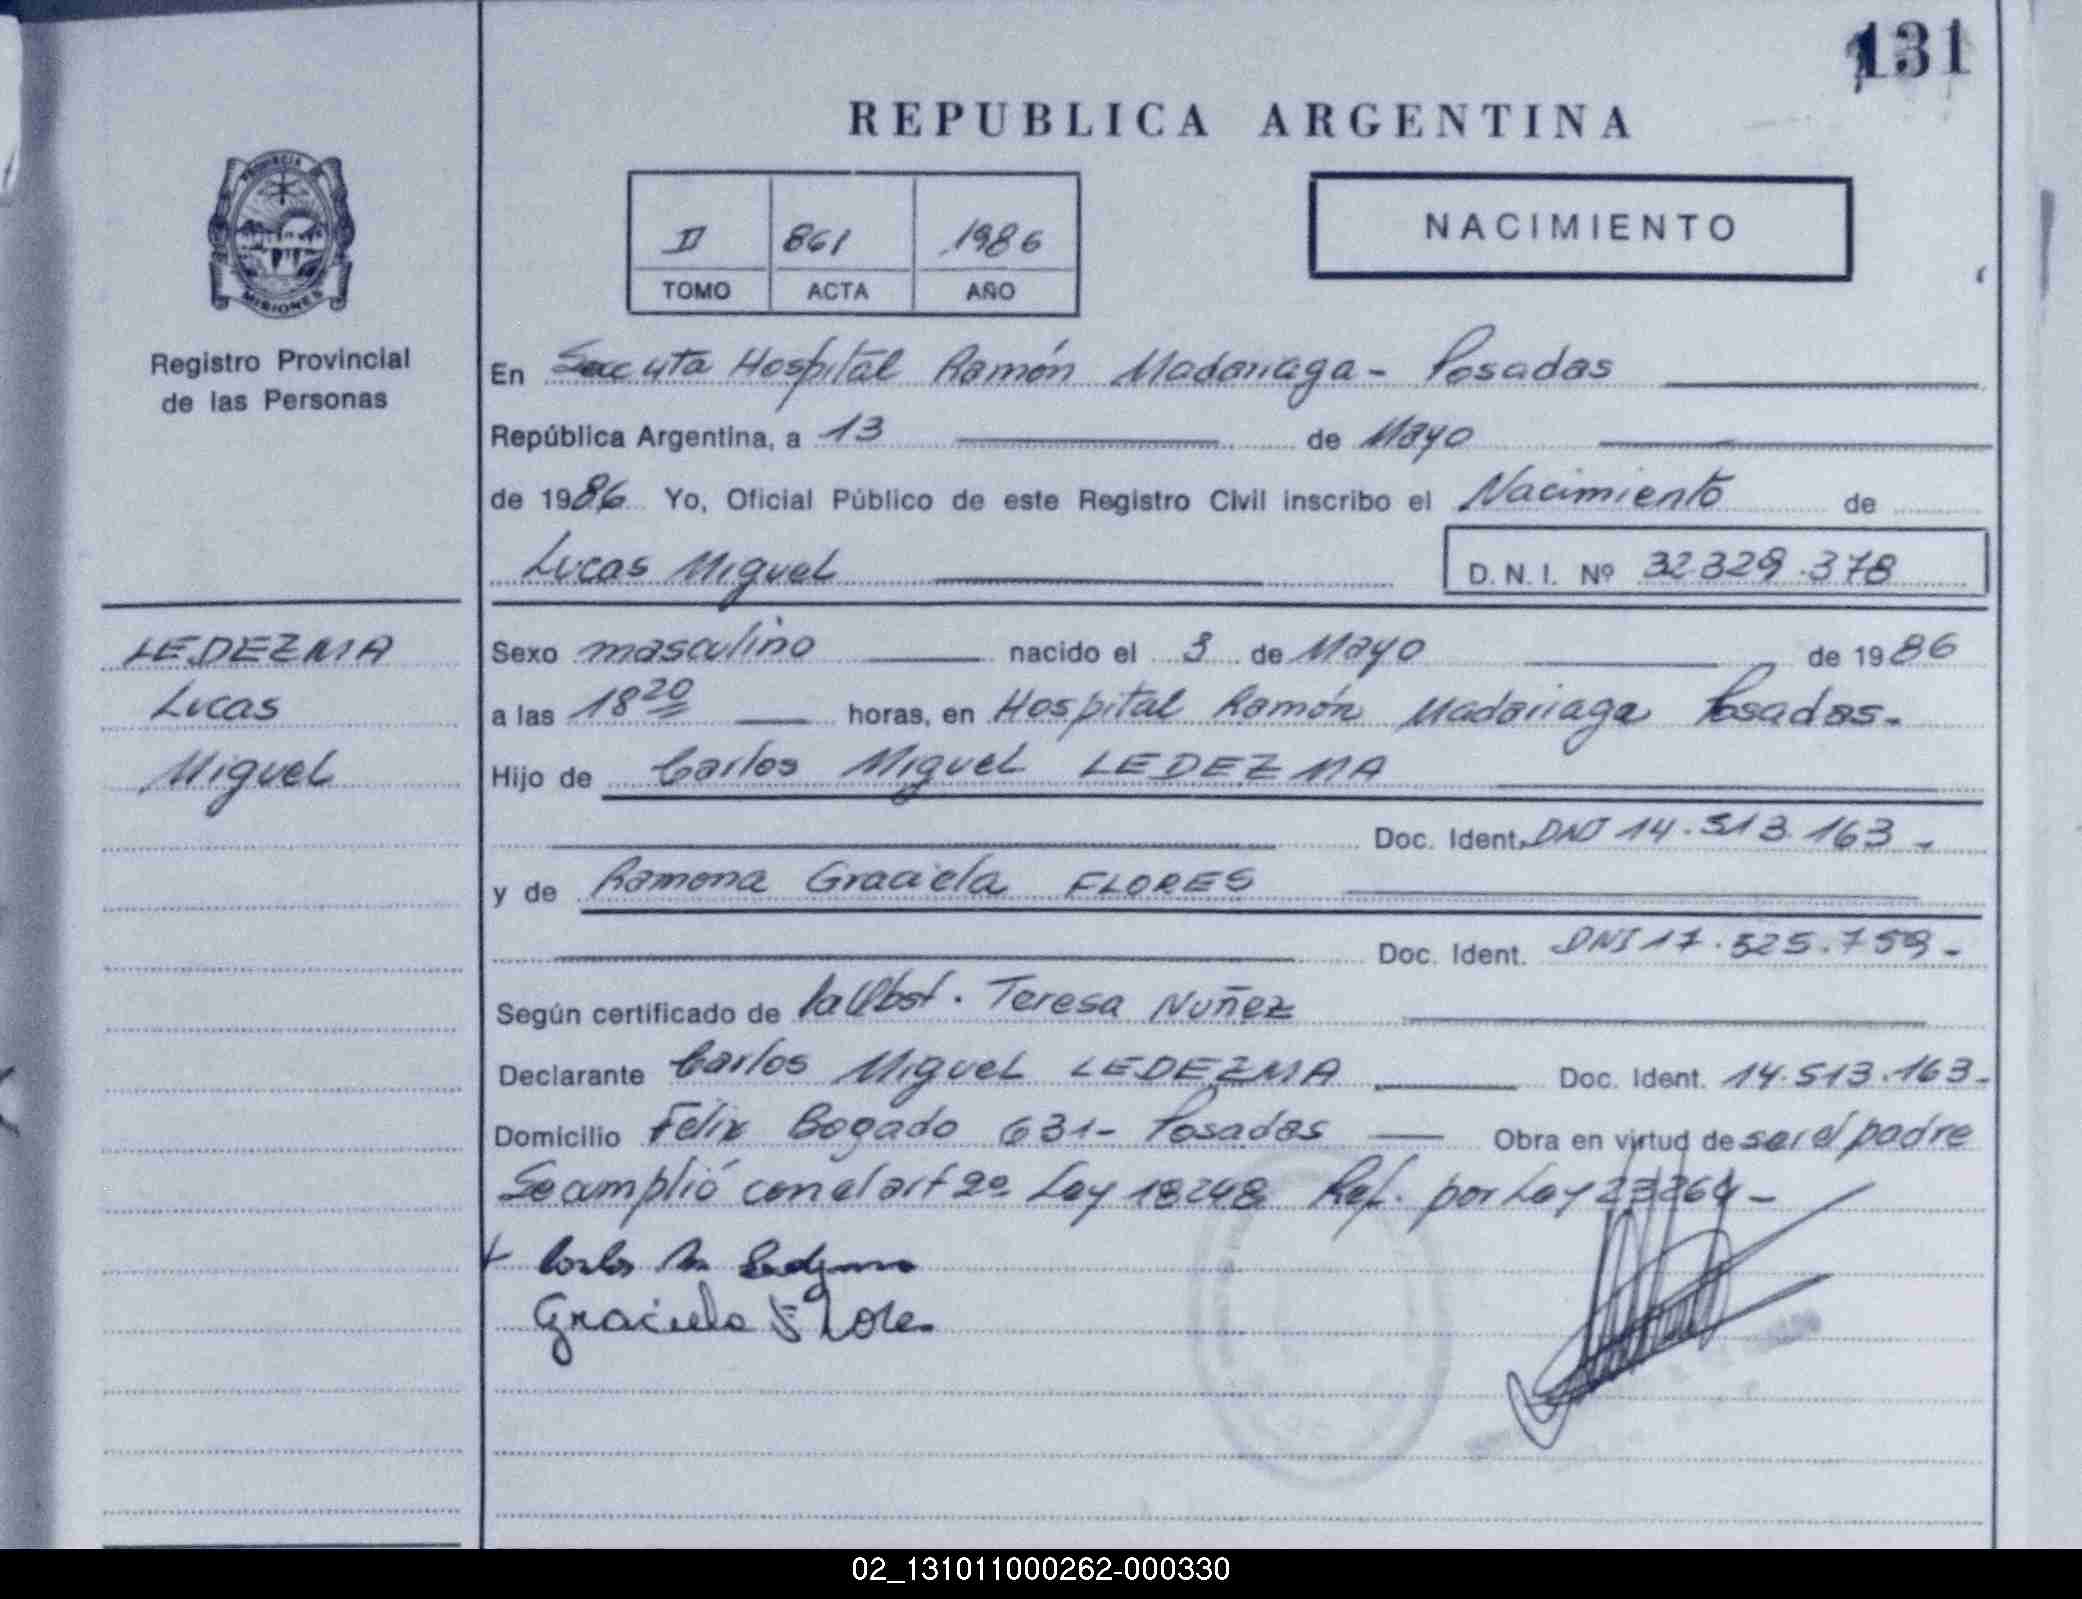 131
REPUBLICA ARGENTINA
PROVINCIA DE
MISIONES
Registro Provincial
de las Personas
II 861 1986
TOMO ACTA AÑO
NACIMIENTO
En Hospital Ramón Madariaga - Posadas
República Argentina, a 13 de Mayo
de 1986 Yo, Oficial Público de este Registro Civil inscribo el Nacimiento de
Lucas Miguel D. N. I. Nº 32.329.378
LEDEZMA
Lucas
Miguel
Sexo masculino nacido el 3 de Mayo de 1986
a las 18 20 horas, en Hospital Ramón Madariaga Posadas.
Hijo de Carlos Miguel LEDEZMA
Doc. Ident. DNI 14.513.163 -
y de Ramona Graciela FLORES
Doc. Ident. DNI 17.525.759 -
Según certificado de la Obst. Teresa Nuñez
Declarante Carlos Miguel LEDEZMA Doc. Ident. 14.513.163 -
Domicilio Felix Bogado 631 - Posadas Obra en virtud de ser el padre
Se amplió con el art 2º Ley 18248 Ref. por Ley 23264 -
Carlos M Ledezma
Graciela Flores
02_131011000262-000330